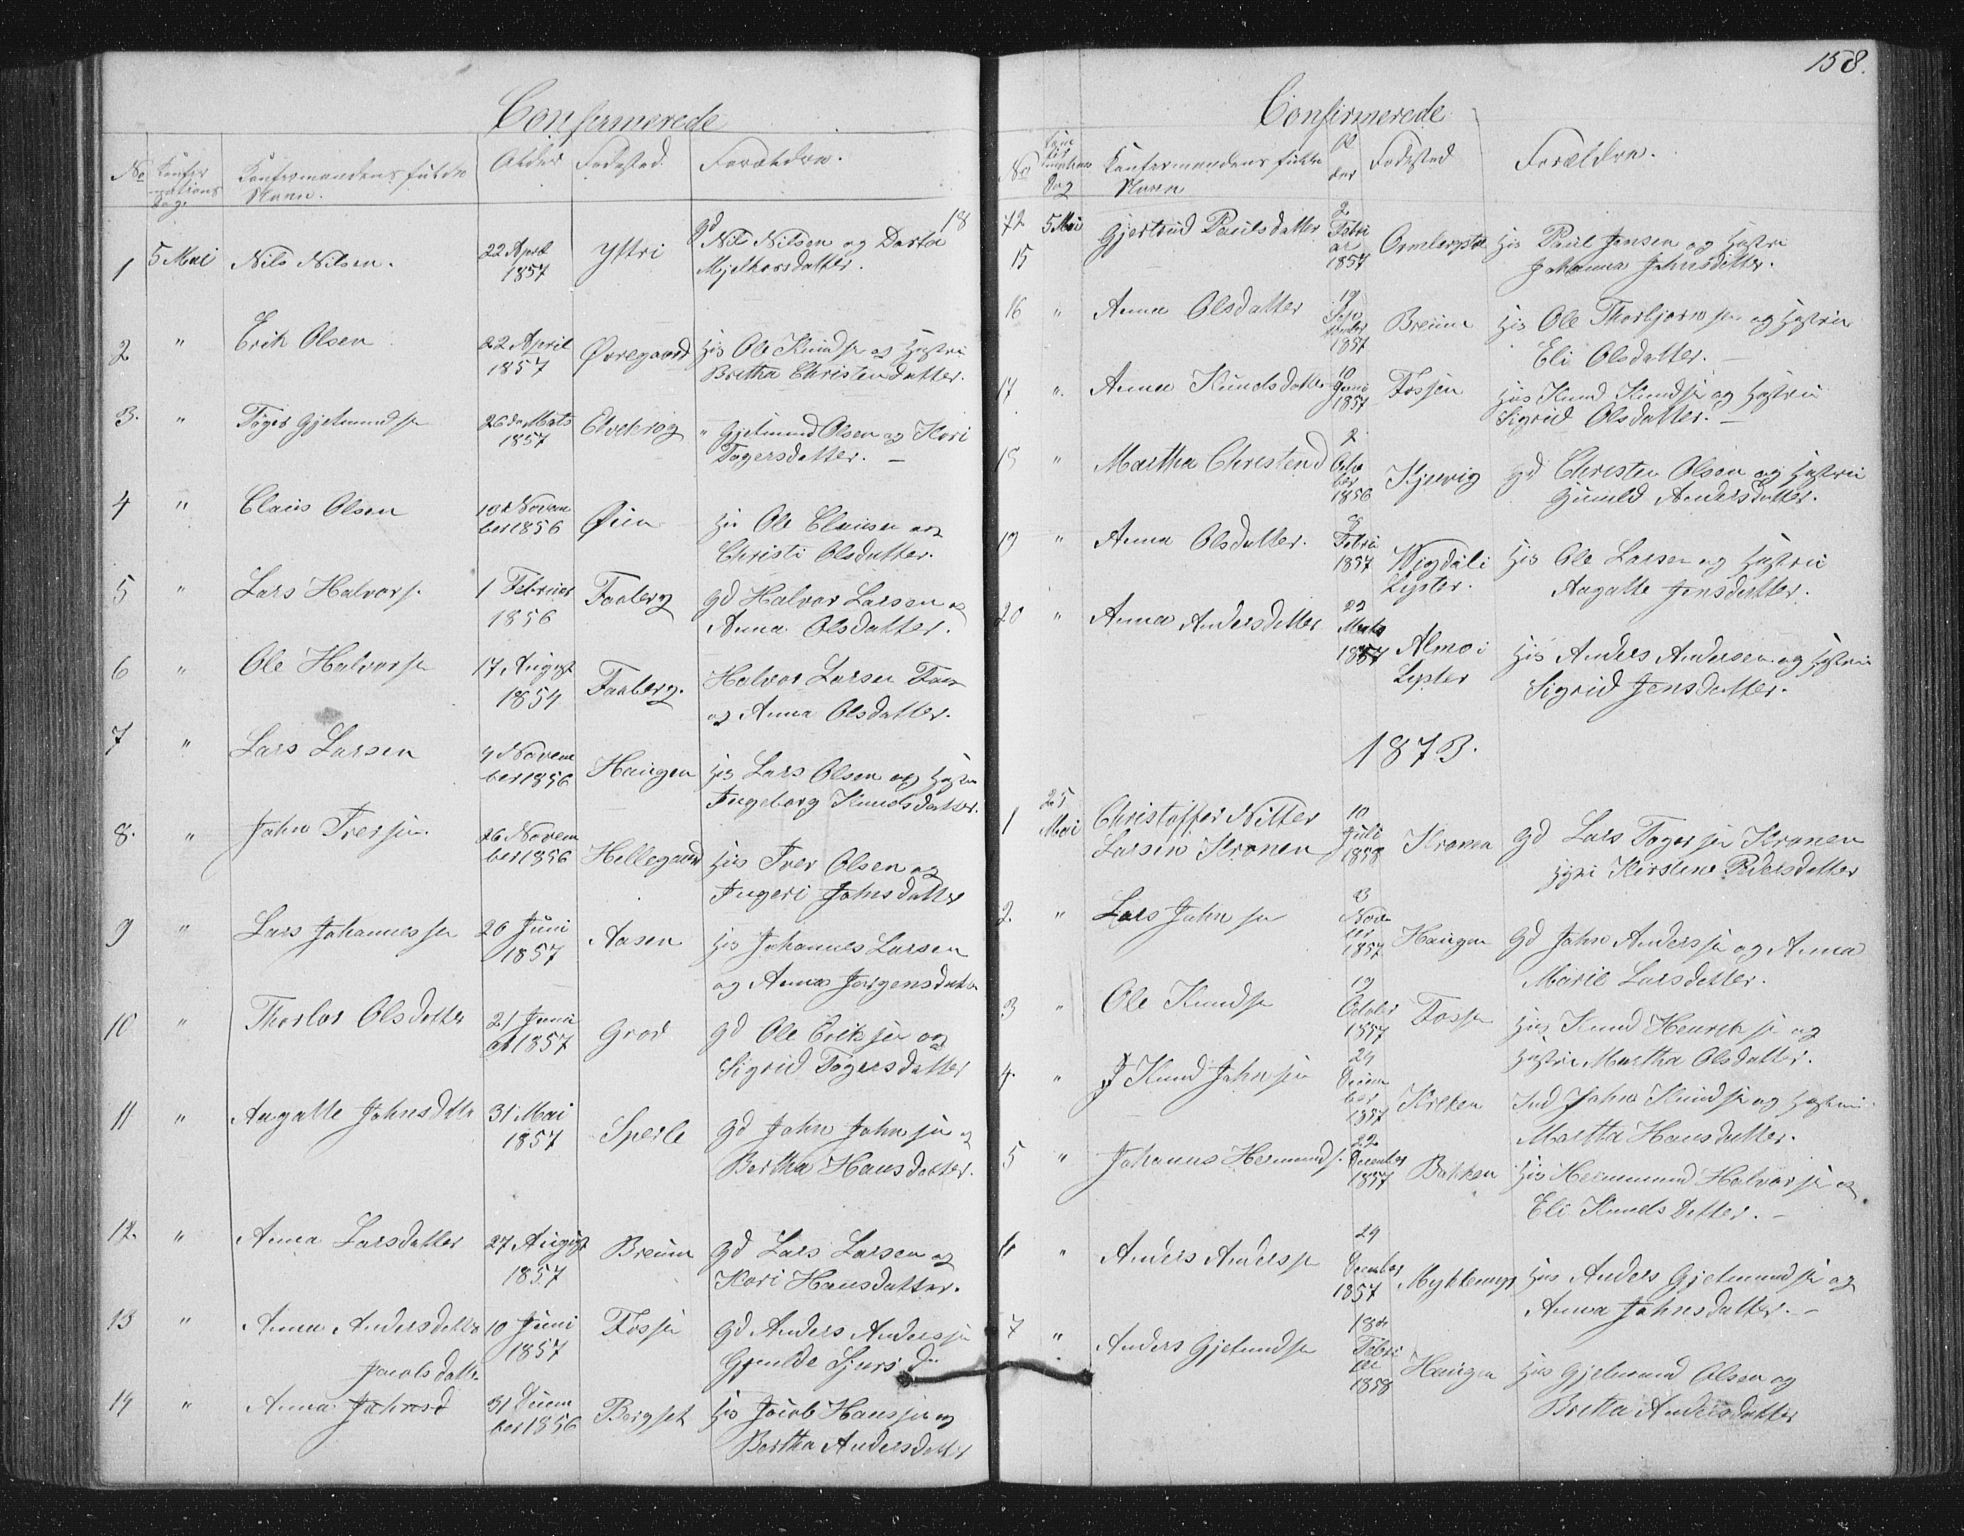 Confirmerede
No Confirmations Dag. Konfirmandens fulde Navn. Alder Fødested. Forældre.
18
1 5 Mai Nils Nilsen. 22 April 1857 Ystri gd Nils Nilsen og Dorta
Mjelhorsdatter.
2 " Erik Olsen 22 April 1857 Øvregaard Hs Ole Knudsn og Hustru
Bretha Christensdatter.
3. " Tøger Gjetmundsn 26de Mats 1857 Elvekrog " Gjetmund Olsen og Kari
Tøgersdatter. —
4 " Claus Olsen 10de November 1856 Øien Hs Ole Clausen og
Christi Olsdatter.
5 " Lars Halvors. 1 Februar 1856 Faaberg gd Halvor Larsen og
Anna Olsdatter.
6 " Ole Halvorsn 17 August 1854 Faaberg. Halvor Larsen Faa
og Anna Olsdatter.
7 " Lars Larsen 4 November 1856 Haugen Hs Lars Olsen og Hustru
Ingeborg Knudsdatter.
8. " John Iversen. 26 November 1856 Hillegaard Hs Iver Olsen og
Ingeri Johnsdatter
9 " Lars Johannessn 26 Juni 1857 Aasen Hs Johannes Larsen
og Anna Jørgensdatter
10 " Thorlar Olsdatter 21 Januar 1857 Grov gd Ole Eriksen og
Sigrid Tøgersdatter
11 " Aagatte Johnsdatte 31 Mai 1857 Sperle gd John Johnsen og
Bertha Hansdatter.
12. " Anna Larsdatter 27 August 1857 Breum gd Lars Larsen og
Kari Hansdatter.
13 " Anna Andersdatte 10 Juni 1857 Fossen gd Anders Anderssn
Gjertrulde Sjurs Dr
14 " Anna Johnsd Jacobsdatte 31 December 1856 Bergset Hs Jacob Hansen og
Bertha Andersdatter
158.
Confirmerede
No Confirmations Dag Konfirmandens fulde Navn Alder Fødested Forældre.
72
15 5 Mai Gjertrud Paulsdatter 2 Februar 1857 Ormbergstøl Hs Paul Jensen og Hustru
Johanna Johnsdatter.
16 " Anna Olsdatter 19 September 1857 Breum Hs Ole Thorbjørnsn og Hustru
Eli Olsdatter. —
17 " Anna Knudsdatter 10 Juni 1857 Fossen Hs Knud Knudsn og Hustru
Sigrid Olsdatter. —
18 " Martha Christend 2 October 1856 Kjervig gd Christen Olsen og Hustru
Gunild Andersdatter.
19 " Anna Olsdatter. 8 Febru 1857 Vigdal i Lyster. Hs Ole Larsen og Hustru
Aagatte Jensdatter.
20 " Anna Andersdatter 22 Mats 1857 Almo i Lyster Hs Anders Andersen og Hustru
Sigrid Jensdatter.
1873.
1 25 Mai Christoffer Nitter Larsen Kronen 10 Juli 1858 Kronen gd Lars Tøgersen Kronen
Hustru Kirstine Pedersdatter
2. " Lars Johnsn 3 November 1857 Haugen gd John Anderssn og Anna
Marie Larsdatter.
3 " Ole Knudsn 19 October 1857 Fossn Hs Knud Henriksn og
Hustru Martha Olsdatter.
4. " Knud Johnsen 24 December 1857 Kreken Ind John Knudsn og Hustru
Martha Hansdatter.
5 " Johannes Hermunds. 22 December 1857 Bakken Hs Hermund Halvorsen og
Eli Knuds Datter. —
6 " Anders Anderssn 29 December 1857 Myklemyr Hs Anders Gjetmundsn og
Anna Johnsdatter. —
7 " Anders Gjetmundsn 18de Februar 1858 Haugen Hs Gjetmund Olsen og
Bretta Andersdatter